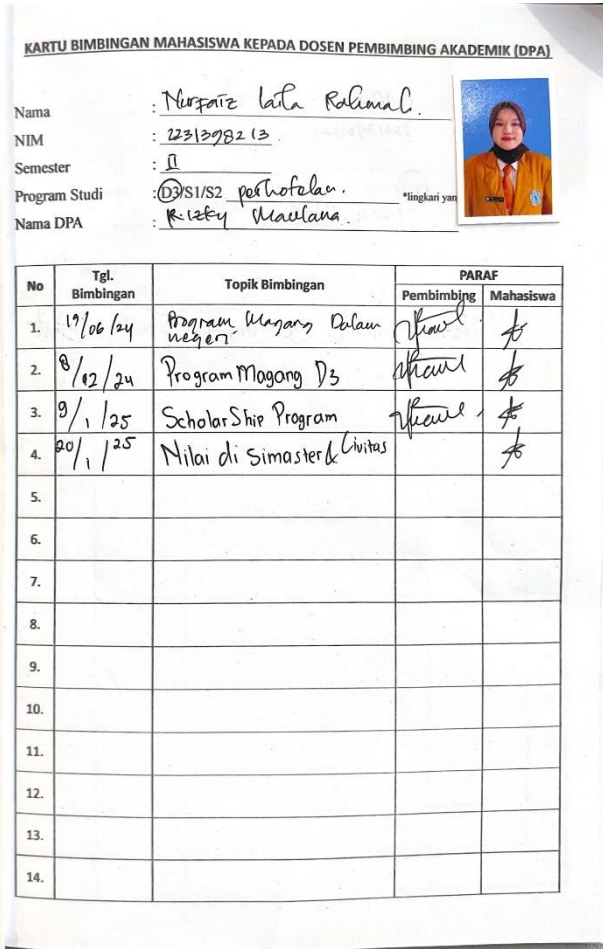 KARTU BIMBINGAN MAHASISWA KEPADA DOSEN PEMBIMBING AKADEMIK (DPA)
Nama : Nurfaiz Laila
NIM : 2231398213
Semester : II
Program Studi : D3/S1/S2 perhotelan. *lingkari yan
Nama DPA : Rizky Maulana.
No Tgl. Bimbingan Topik Bimbingan PARAF
Pembimbing Mahasiswa
1. 19/06/24 Program Magang Dalam
negeri
2. 8/12/24 Program Magang D3
3. 9/1/25 ScholarShip Program
4. 20/1/25 Nilai di Simaster & Civitas
5.
6.
7.
8.
9.
10.
11.
12.
13.
14.